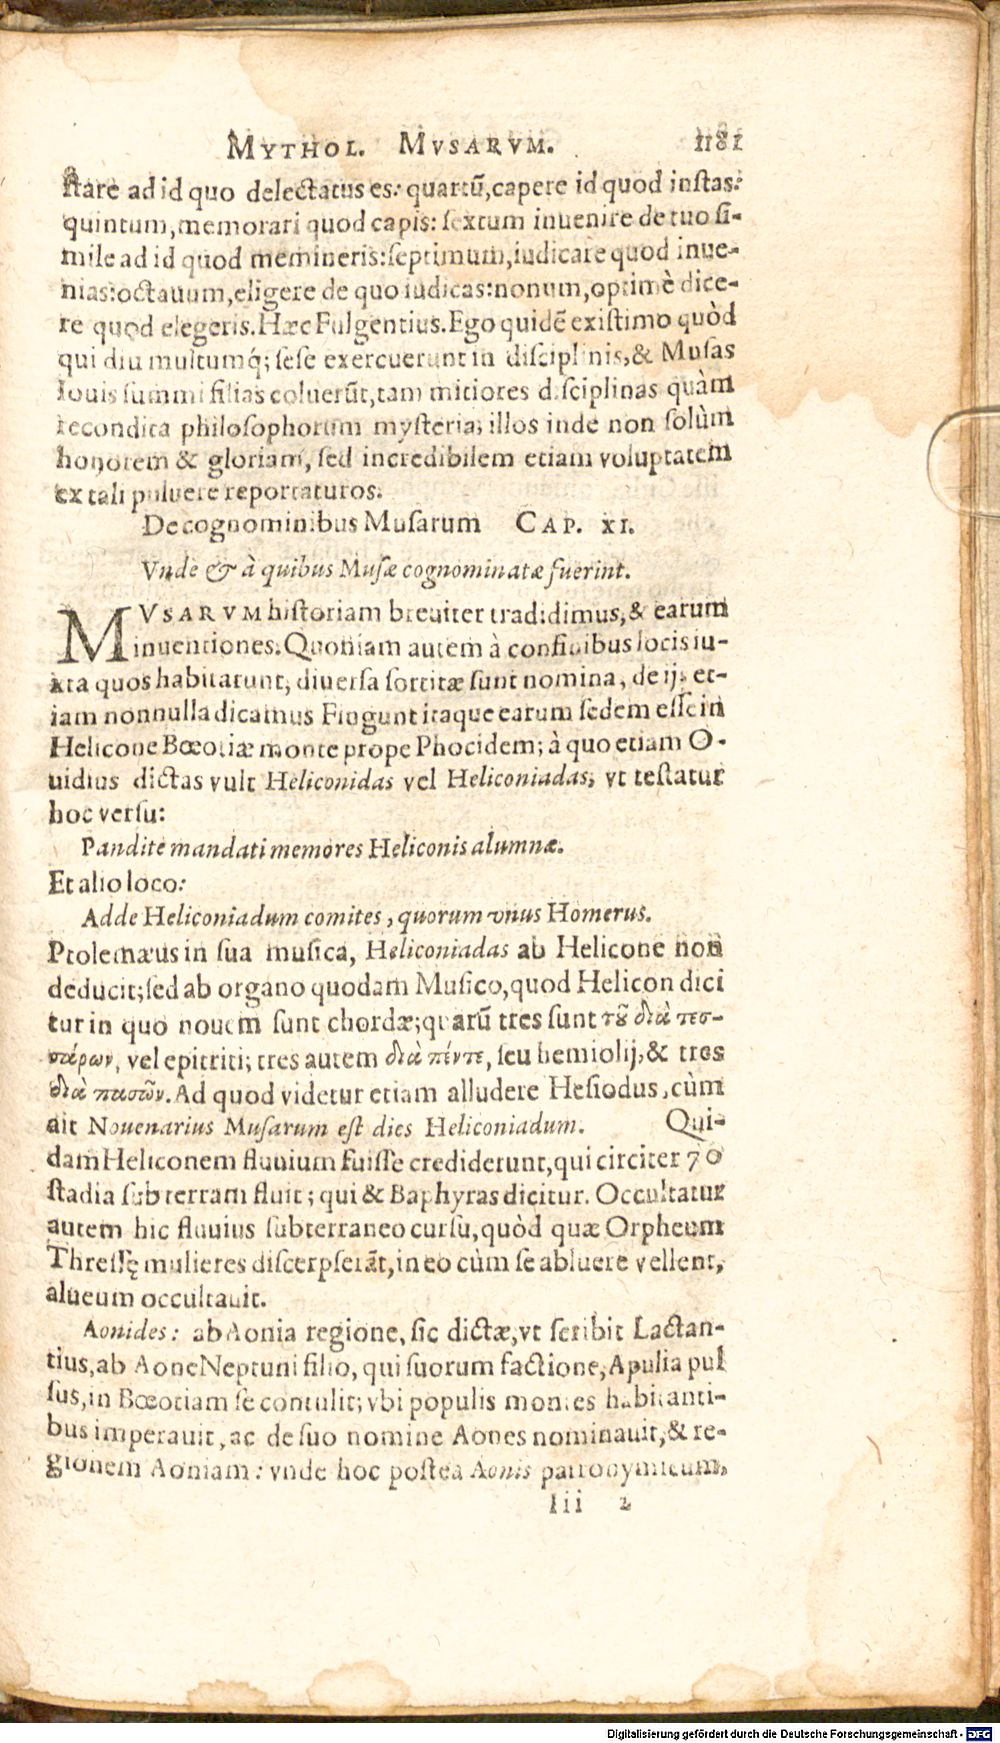 MYTHOL. MVSARVM. 1181
ſtare ad id quo delectatus es: quartũ, capere id quod inſtas:
quintum, memorari quod capis: ſextum inuenire de tuo ſi-
mile ad id quod memineris: ſeptimum, iudicare quod inue-
nias: octauum, eligere de quo iudicas: nonum, optimè dice-
re quod elegeris. Hæc Fulgentius. Ego quidẽ exiſtimo quòd
qui diu multumq́; ſeſe exercuerunt in diſciplinis, & Muſas
Iouis ſummi filias coluerũt, tam mitiores diſciplinas quàm
recondita philoſophorum myſteria; illos inde non ſolùm
honorem & gloriam, ſed incredibilem etiam voluptatem
ex tali puluere reportaturos.
De cognominibus Muſarum CAP. XI.
Vnde & à quibus Muſæ cognominatæ fuerint.
MVSARVM hiſtoriam breuiter tradidimus, & earum
inuentiones. Quoniam autem à confinibus locis iu-
xta quos habitarunt, diuerſa ſortitæ ſunt nomina, de ijs et-
iam nonnulla dicamus Fingunt itaque earum ſedem eſſe in
Helicone Bœotiæ monte prope Phocidem; à quo etiam O-
uidius dictas vult Heliconidas vel Heliconiadas, vt teſtatur
hoc verſu:
Pandite mandati memores Heliconis alumnæ.
Et alio loco:
Adde Heliconiadum comites, quorum vnus Homerus.
Ptolemæus in ſua muſica, Heliconiadas ab Helicone non
deducit; ſed ab organo quodam Muſico, quod Helicon dici
tur in quo nouem ſunt chordæ; quarũ tres ſunt τȣ͂ διὰ τεσ-
σάρων, vel epitriti; tres autem διὰ πέντε, ſeu hemiolij, & tres
διὰ πασῶν. Ad quod videtur etiam alludere Heſiodus, cùm
ait Nouenarius Muſarum eſt dies Heliconiadum. Qui-
dam Heliconem fluuium fuiſſe crediderunt, qui circiter 70
ſtadia ſub terram fluit; qui & Baphyras dicitur. Occultatur
autem hic fluuius ſubterraneo curſu, quòd quæ Orpheum
Threſſę mulieres diſcerpſerãt, in eo cùm ſe abluere vellent,
alueum occultauit.
Aonides: ab Aonia regione, ſic dictæ, vt ſcribit Lactan-
tius, ab Aone Neptuni filio, qui ſuorum factione, Apulia pul
ſus, in Bœotiam ſe contulit; vbi populis montes habitanti-
bus imperauit, ac de ſuo nomine Aones nominauit, & re-
gionem Aoniam: vnde hoc poſtea Aonis patronymicum,
Iii 2
Digitalisierung gefördert durch die Deutsche Forschungsgemeinschaft - DFG